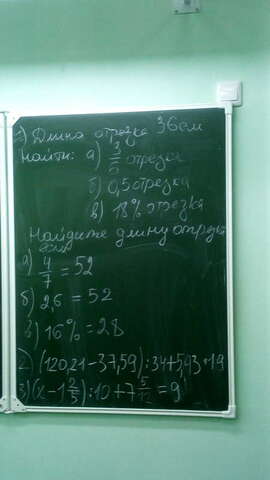 1) Длина отрезка 36см
Найти: а) 3/5 отрезка
б) 0,5 отрезка
в) 18% отрезка
Найдите длину отрезка
если
а) 4/7 = 52
б) 2,6 = 52
в) 16% = 28
2) (120,21-37,59):34+5,43·19
3) (x-1 2/5):10+7 5/12=9